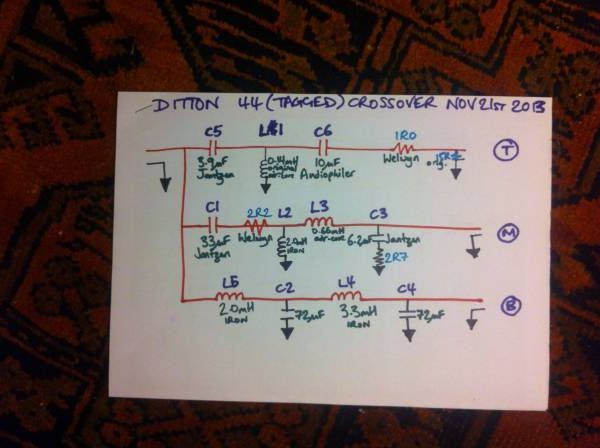 DITTON 44 (TAGGED) CROSSOVER NOV 21ST 2013
C5 L1 C6 1R0
3.9µF 0.14mH 10µF Welwyn orig.
Jantzen original Audiophiler
air-core
T
C1 2R2 L2 L3 C3
33µF Welwyn 2.0mH 0.66mH 6.2µF Jantzen
Jantzen IRON air-core 2R7
M
L5 C2 L4 C4
2.0mH 72µF 3.3mH 72µF
IRON IRON
B